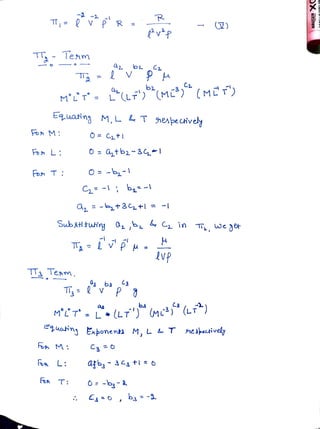 π₁ = ℓ⁻² v⁻² ρ⁻¹ R = R / ℓ²v²ρ — (IV)
π₂ - Term
π₂ = ℓ^a₂ v^b₂ ρ^c₂ μ
M⁰L⁰T⁰ = L^a₂ (LT⁻¹)^b₂ (ML⁻³)^c₂ (ML⁻¹T⁻¹)
Equating M, L & T respectively
For M: 0 = c₂+1
For L: 0 = a₂+b₂-3c₂-1
For T: 0 = -b₂-1
c₂ = -1 ; b₂ = -1
a₂ = -b₂+3c₂+1 = -1
Substituting a₂, b₂ & c₂ in π₂, we get
π₂ = ℓ⁻¹ v⁻¹ ρ⁻¹ μ = μ / ℓvρ
π₃ Term.
π₃ = ℓ^a₃ v^b₃ ρ^c₃ g
M⁰L⁰T⁰ = L^a₃ (LT⁻¹)^b₃ (ML⁻³)^c₃ (LT⁻²)
Equating Exponents M, L & T respectively
For M: c₃ = 0
For L: a₃+b₃-3c₃+1 = 0
For T: 0 = -b₃-2
∴ c₃ = 0 , b₃ = -2